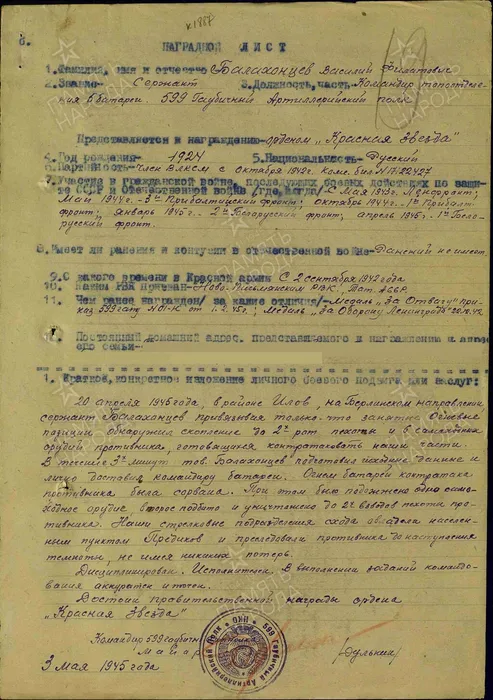 8.
к 1988
НАГРАДНОЙ ЛИСТ
1. Фамилия, имя и отчество Балахонцев Василий Филатович
2. Звание- Сержант 3. Должность, часть- Командир топоотделе-
ния 6 батареи. 599 Гаубичный Артиллерийский полк
Представляется к награждению- орденом „Красная Звезда"
4. Год рождения- 1924 5. Национальность- Русский
6. Партийность- Член ВЛКСМ с октября 1942г. Комс. бил. №17221427
7. Участие в гражданской войне, последующих боевых действиях по защи-
те СССР и Отечественной войне /где, когда/- С Мая 1943г. Ленфронт;
Май 1944г - 3й Прибалтийский фронт; октябрь 1944г - 1й Прибалт.
фронт; январь 1945г - 2й Белорусский фронт; апрель 1945г - 1й Бело-
русский фронт.
8. Имеет ли ранения и контузии в отечественной войне- Ранений не имеет.
9. С какого времени в Красной армии С 2 сентября 1942 года
10. Каким РВК призван- Ново-Письмянским РВК, Тат. АССР.
11. Чем ранее награжден/ за какие отличия/- Медаль „За Отвагу" при-
каз 599 гап №01-н от 1.2.45г.; Медаль „За Оборону Ленинграда"
Постоянный домашний адрес представляемого к награждению и адрес
его семьи-
1. Краткое, конкретное изложение личного боевого подвига или заслуг:
20 апреля 1945 года, в районе Илов, на Берлинском направлении
сержант Балаханцев привязывая только-что занятые Огневые
позиции, обнаружил скопление до 2х рот пехоты и 2 самоходных
орудий противника, готовящихся контратаковать наши части.
В течение 3х минут тов. Балахонцев подготовил исходные данные и
лично доставил командиру батареи. Огнем батареи контратака
противника была сорвана. При этом было подожжено одно само-
ходное орудие, второе подбито и уничтожено до 2х взводов пехоты про-
тивника. Наши стрелковые подразделения с хода овладели населен-
ным пунктом Предиков и преследовали противника до наступления
темноты, не имея никаких потерь.
Дисциплинирован. Исполнителен. В выполнении заданий командо-
вания аккуратен и точен.
Достоин правительственной награды ордена
„Красная Звезда"
Командир 599 гаубичного артполка
Майор /Дульнии/
3 Мая 1945 года
599 Гаубичный Артиллерийский Полк НКО